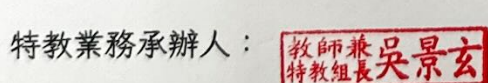 特教業務承辦人：
教師兼
特教組長 吳景玄